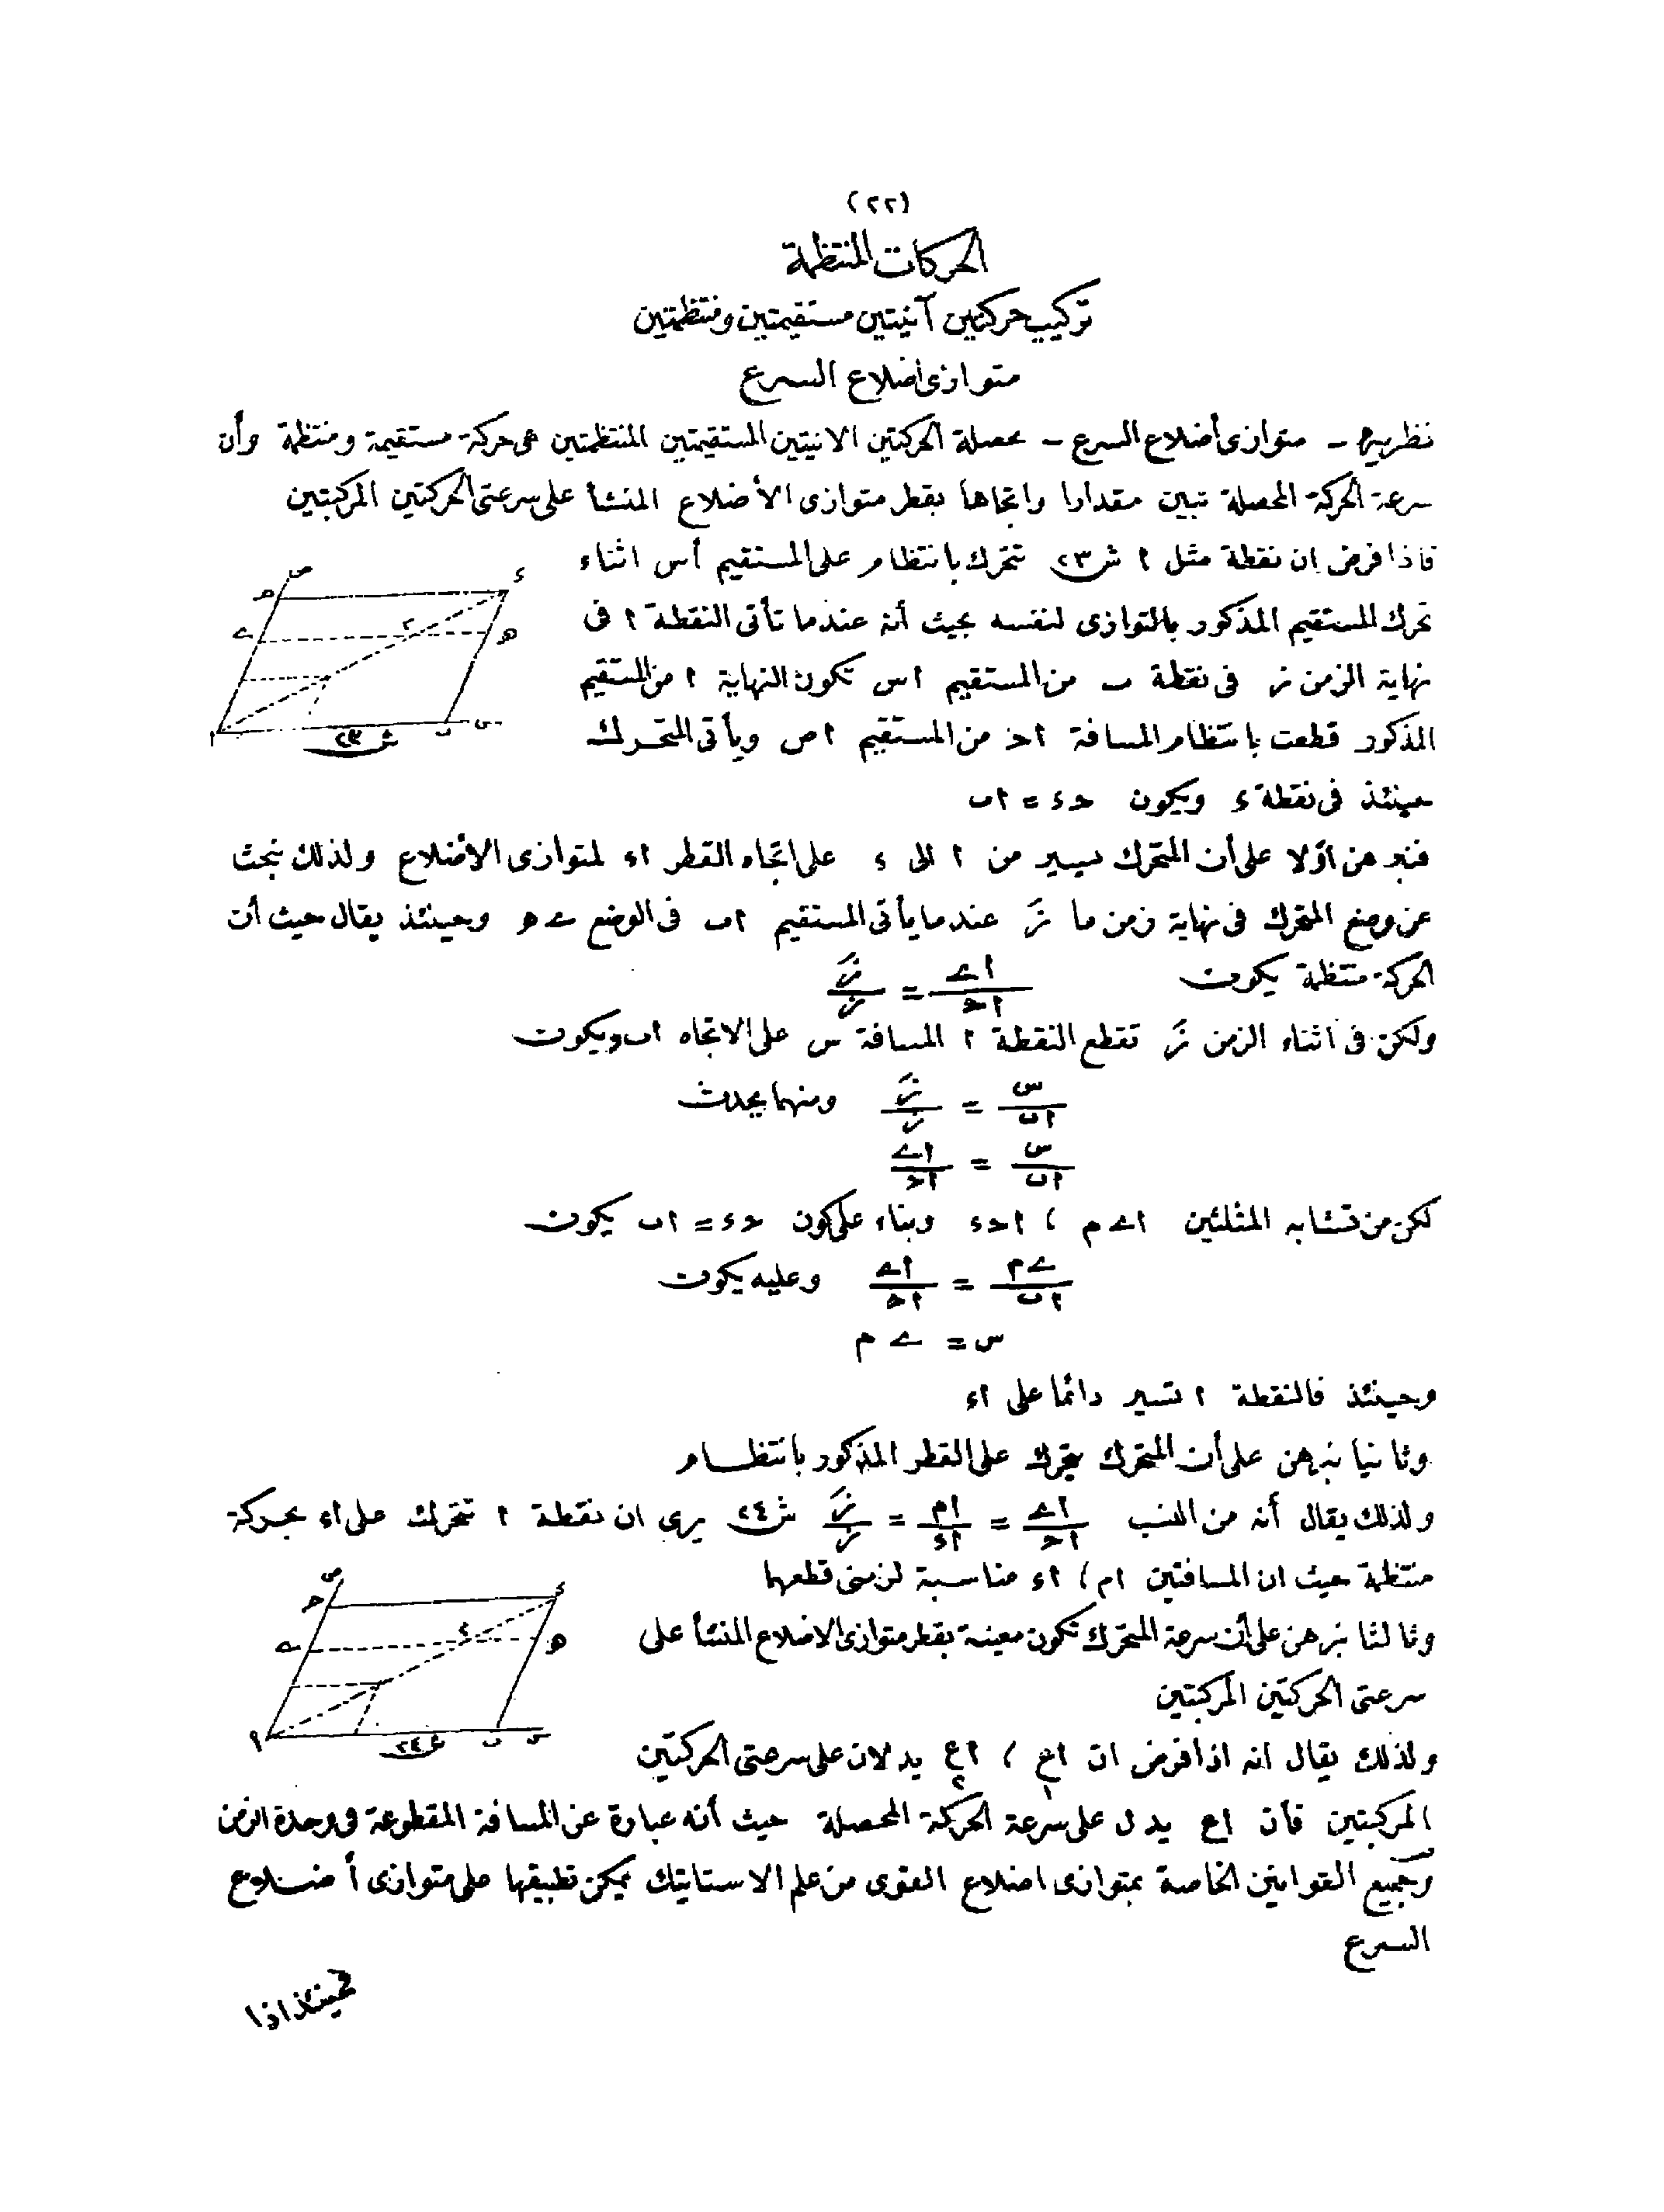 (٢٢)
الحركات المنتظمة
تركيب حركتين آنيتين مستقيمتين ومنتظمتين
متوازى اضلاع السرع
نظرية - متوازى أضلاع السرع - محصلة الحركتين الانيتين المستقيمتين المنتظمتين هى حركة مستقيمة ومنتظمة وأن
سرعة الحركة المحصلة تبين مقدارا واتجاها بقطر متوازى الأضلاع المنشأ على سرعتى الحركتين المركبتين
فاذا فرض ان نقطة مثل ا ش ٢٣ تتحرك بانتظام على المستقيم أس اثناء
تحرك المستقيم المذكور بالتوازى لنفسه بحيث أنه عندما تأتى النقطة ا فى
نهاية الزمن ز فى نقطة ب من المستقيم اس تكون النهاية ا من المستقيم
المذكور قطعت بانتظام المسافة اح من المستقيم اص ويأتى المتحرك
حينئذ فى نقطة ء ويكون حء = اب
ص
ح
ى
ا
ء
م
ھ
ب
س
ش ٢٣
فنبرهن اولا على أن المتحرك يسير من ا الى ء على اتجاه القطر اء لمتوازى الاضلاع ولذلك نبحث
عن وضع المتحرك فى نهاية زمن ما زَ عندما يأتى المستقيم اب فى الوضع ى ھ وحينئذ يقال حيث أن
الحركة منتظمة يكون اى/اح = زَ/ز
ولكن فى اثناء الزمن زَ تقطع النقطة ا المسافة س على الاتجاه اب ويكون
س/اب = زَ/ز ومنهما يحدث
س/اب = اى/اح
لكن من تشابه المثلثين اى م ، احء وبناء على كون حء = اب يكون
ى م/اب = اى/اح وعليه يكون
س = ى م
وحينئذ فالنقطة ا تسير دائما على اء
وثانيا نبرهن على أن المتحرك يتحرك على القطر المذكور بانتظام
ولذلك يقال أنه من النسب اى/اح = ام/اء = زَ/ز ش ٢٤ يرى ان نقطة ا تتحرك على اء بحركة
منتظمة حيث ان المسافتين ام ، اء مناسبة لزمنى قطعهما
وثالثا نبرهن على أن سرعة المتحرك تكون معينة بقطر متوازى الاضلاع المنشأ على
سرعتى الحركتين المركبتين
ص
ح
ى
ء
ھ
ب
س
ش ٢٤
ولذلك يقال انه اذا فرض ان اع١ ، اع٢ يدلان على سرعتى الحركتين
المركبتين فأن اع يدل على سرعة الحركة المحصلة حيث أنه عبارة عن المسافة المقطوعة فى وحدة الزمن
وجميع القوانين الخاصة بمتوازى اضلاع القوى من علم الاستاتيك يمكن تطبيقها على متوازى أضلاع
السرع
فحينئذ اذا